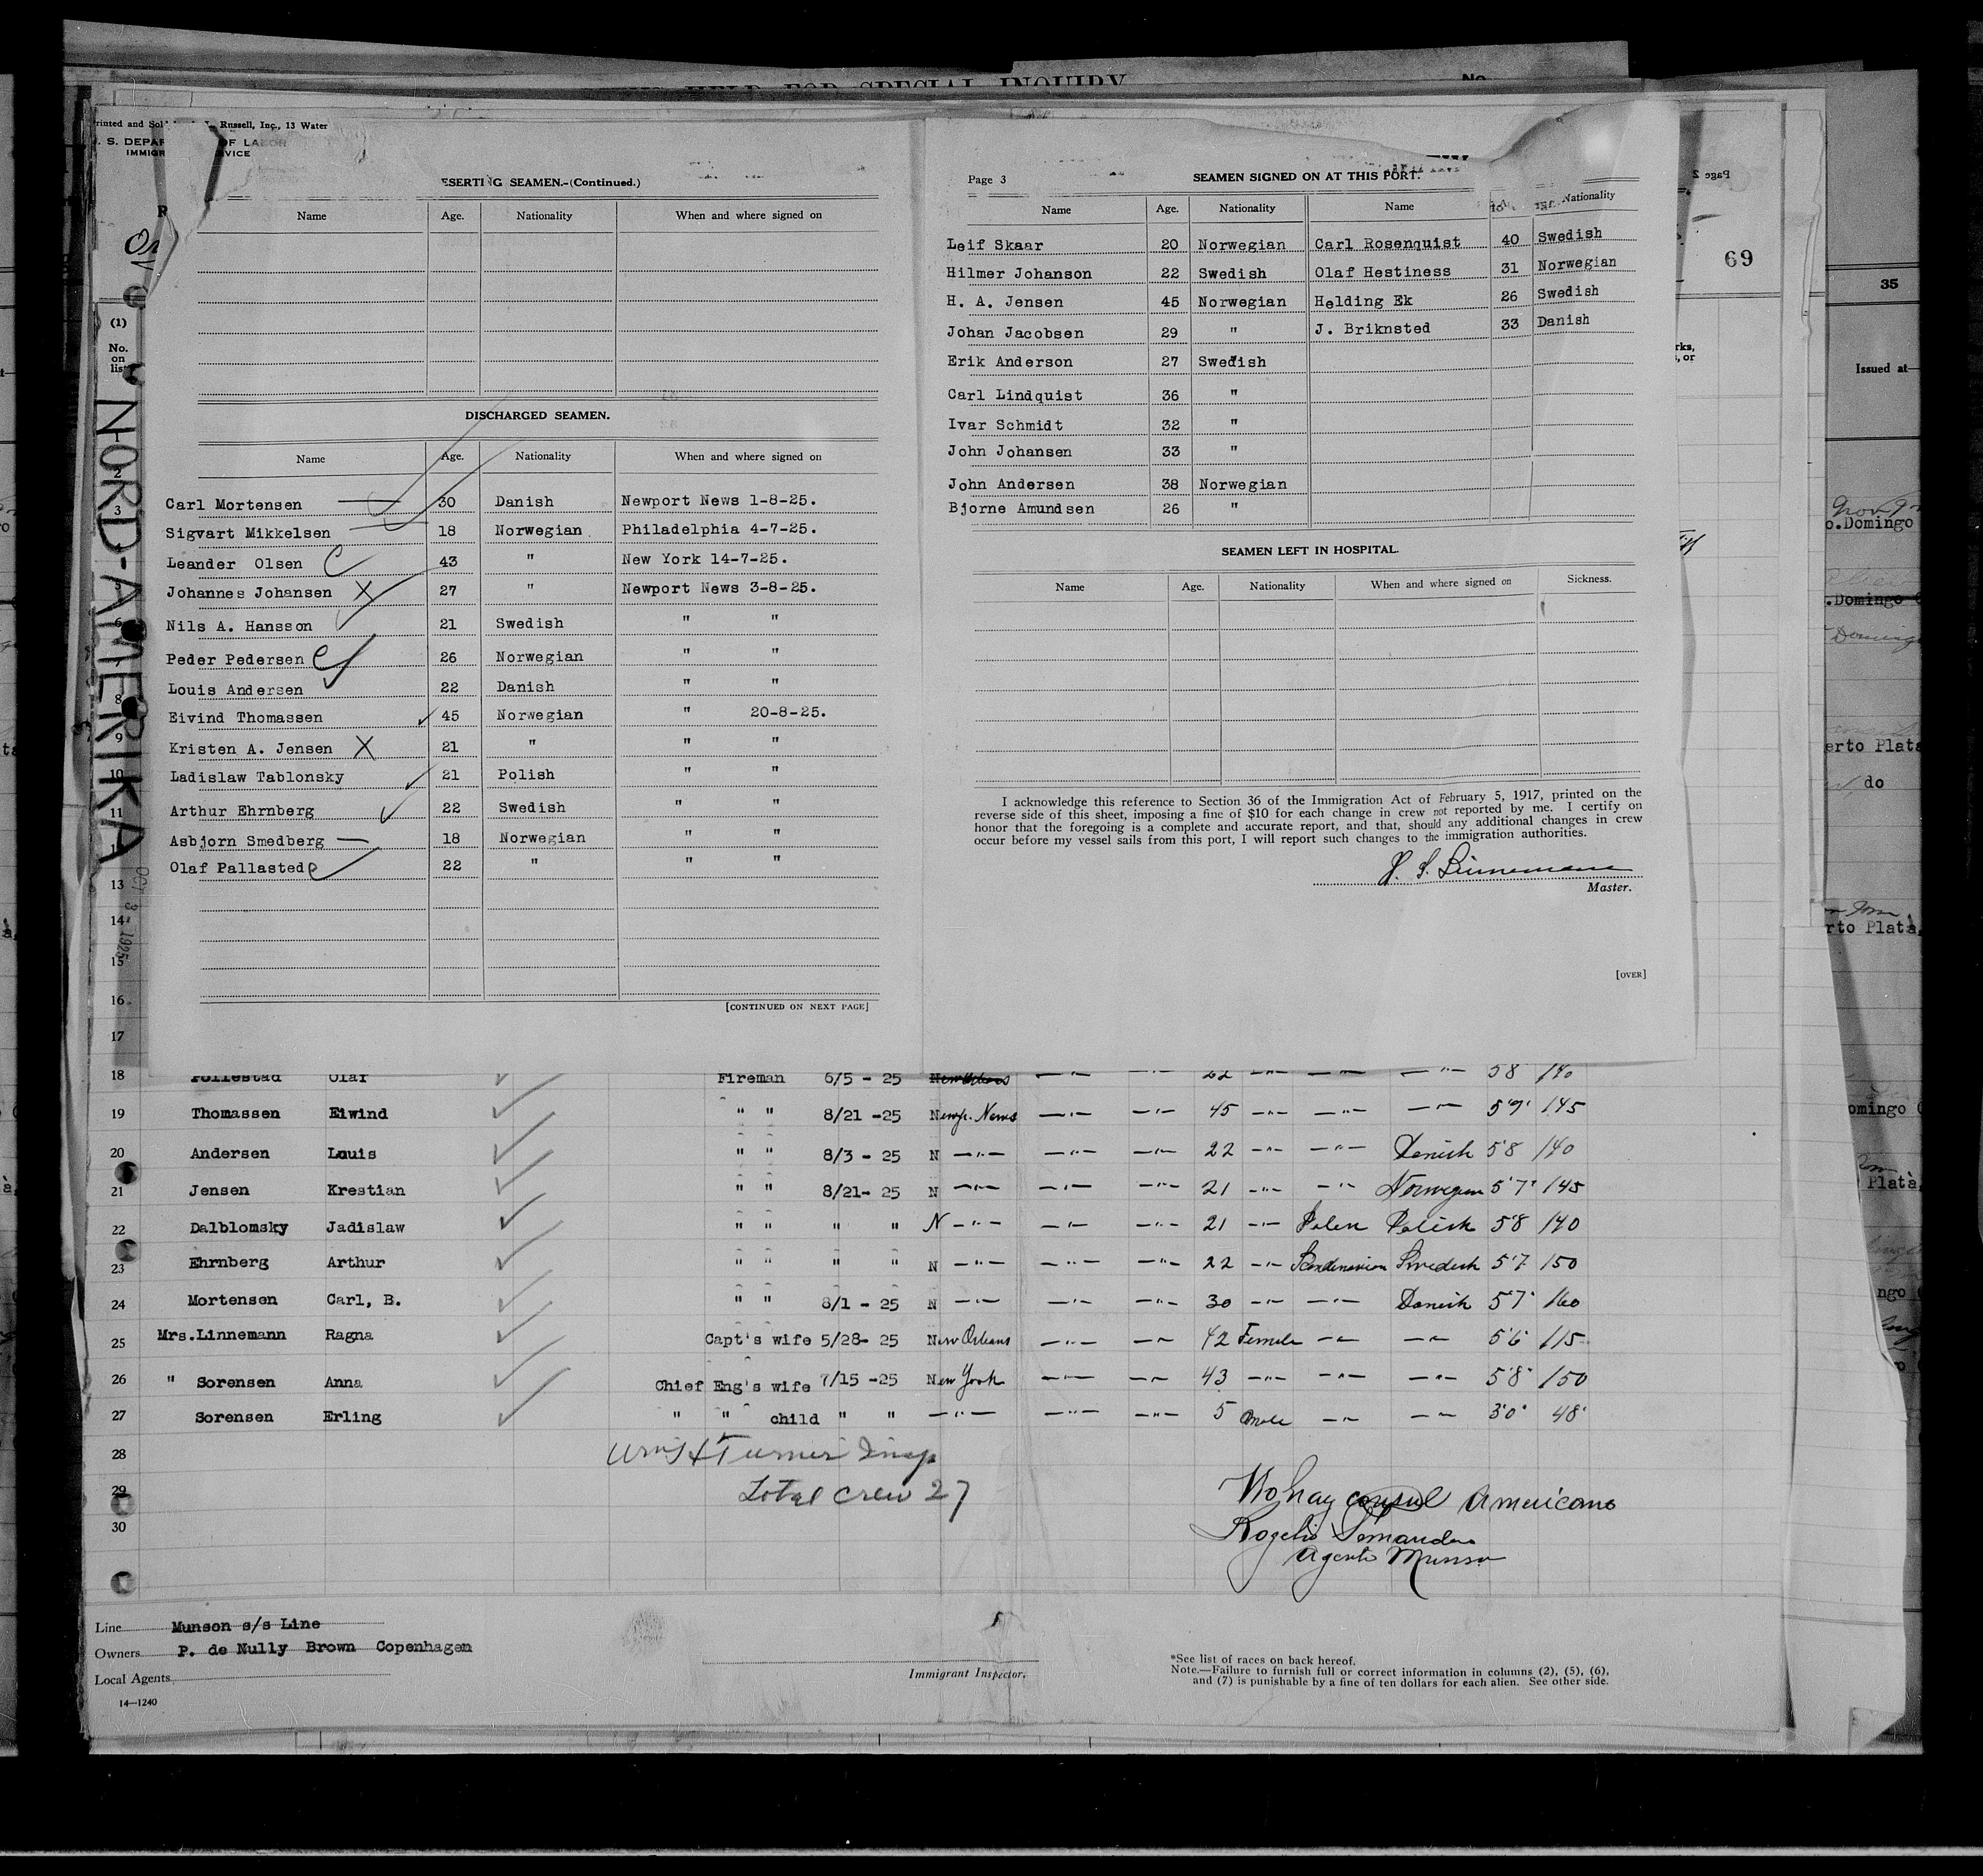 HELD FOR SPECIAL INQUIRY
No.
Printed and Sold Russell, Inc., 13 Water
U. S. DEPAR OF LABOR
IMMIGR VICE
ESERTING SEAMEN.—(Continued.)
Name Age. Nationality When and where signed on
DISCHARGED SEAMEN.
Name Age. Nationality When and where signed on
Carl Mortensen 30 Danish Newport News 1-8-25.
Sigvart Mikkelsen 18 Norwegian Philadelphia 4-7-25.
Leander Olsen 43 " New York 14-7-25.
Johannes Johansen X 27 " Newport News 3-8-25.
Nils A. Hansson 21 Swedish " "
Peder Pedersen 26 Norwegian " "
Louis Andersen 22 Danish " "
Eivind Thomassen 45 Norwegian " 20-8-25.
Kristen A. Jensen X 21 " " "
Ladislaw Tablonsky 21 Polish " "
Arthur Ehrnberg 22 Swedish " "
Asbjorn Smedberg 18 Norwegian " "
Olaf Pallasted 22 " " "
[CONTINUED ON NEXT PAGE]
Page 3 SEAMEN SIGNED ON AT THIS PORT.
Name Age. Nationality Name Nationality
Leif Skaar 20 Norwegian Carl Rosenquist 40 Swedish
Hilmer Johanson 22 Swedish Olaf Hestiness 31 Norwegian
H. A. Jensen 45 Norwegian Helding Ek 26 Swedish
Johan Jacobsen 29 " J. Briknsted 33 Danish
Erik Anderson 27 Swedish
Carl Lindquist 36 "
Ivar Schmidt 32 "
John Johansen 33 "
John Andersen 38 Norwegian
Bjorne Amundsen 26 "
SEAMEN LEFT IN HOSPITAL.
Name Age. Nationality When and where signed on Sickness.
I acknowledge this reference to Section 36 of the Immigration Act of February 5, 1917, printed on the
reverse side of this sheet, imposing a fine of $10 for each change in crew not reported by me. I certify on
honor that the foregoing is a complete and accurate report, and that, should any additional changes in crew
occur before my vessel sails from this port, I will report such changes to the immigration authorities.
Linnemann
Master.
[OVER]
Page 2
69
35
Issued at—
o.Domingo
.Domingo
erto Plata
do
rto Plata,
omingo
Plata,
ngo
(1)
No.
on
list
NORD-AMERIKA
OCT 3 1925
2
3
5
6
8
9
10
11
13
14
15
16
17
18 Pollestad Olaf Fireman 6/5 - 25 22 58 140
19 Thomassen Eiwind " " 8/21 -25 Newp. News —"— —"— 45 —"— —"— —"— 5'9" 145
20 Andersen Louis " " 8/3 - 25 N —"— —"— —"— 22 —"— —"— Danish 5'8 140
21 Jensen Krestian " " 8/21- 25 N —"— —"— —"— 21 —"— —"— Norwegian 5'7" 145
22 Dalblomsky Jadislaw " " " " N —"— —"— —"— 21 —"— Polen Polish 5'8 140
23 Ehrnberg Arthur " " " " N —"— —"— —"— 22 —"— Scandinavian Swedish 5'7 150
24 Mortensen Carl, B. " " 8/1 - 25 N —"— —"— —"— 30 —"— —"— Danish 5'7" 160
25 Mrs.Linnemann Ragna Capt's wife 5/28- 25 New Orleans —"— —"— 42 Female —"— —"— 5'6" 115
26 " Sorensen Anna Chief Eng's wife 7/15 -25 New York —"— —"— 43 —"— —"— —"— 5'8" 150
27 Sorensen Erling " " child " " —"— —"— —"— 5 Male —"— —"— 3'0" 48
28 Turner Insp
29 Total crew 27
30
consul Americano
Rogelio
Agente Munson
Line Munson s/s Line
Owners P. de Nully Brown Copenhagen
Local Agents
14—1240
Immigrant Inspector.
*See list of races on back hereof.
Note.—Failure to furnish full or correct information in columns (2), (5), (6),
and (7) is punishable by a fine of ten dollars for each alien. See other side.